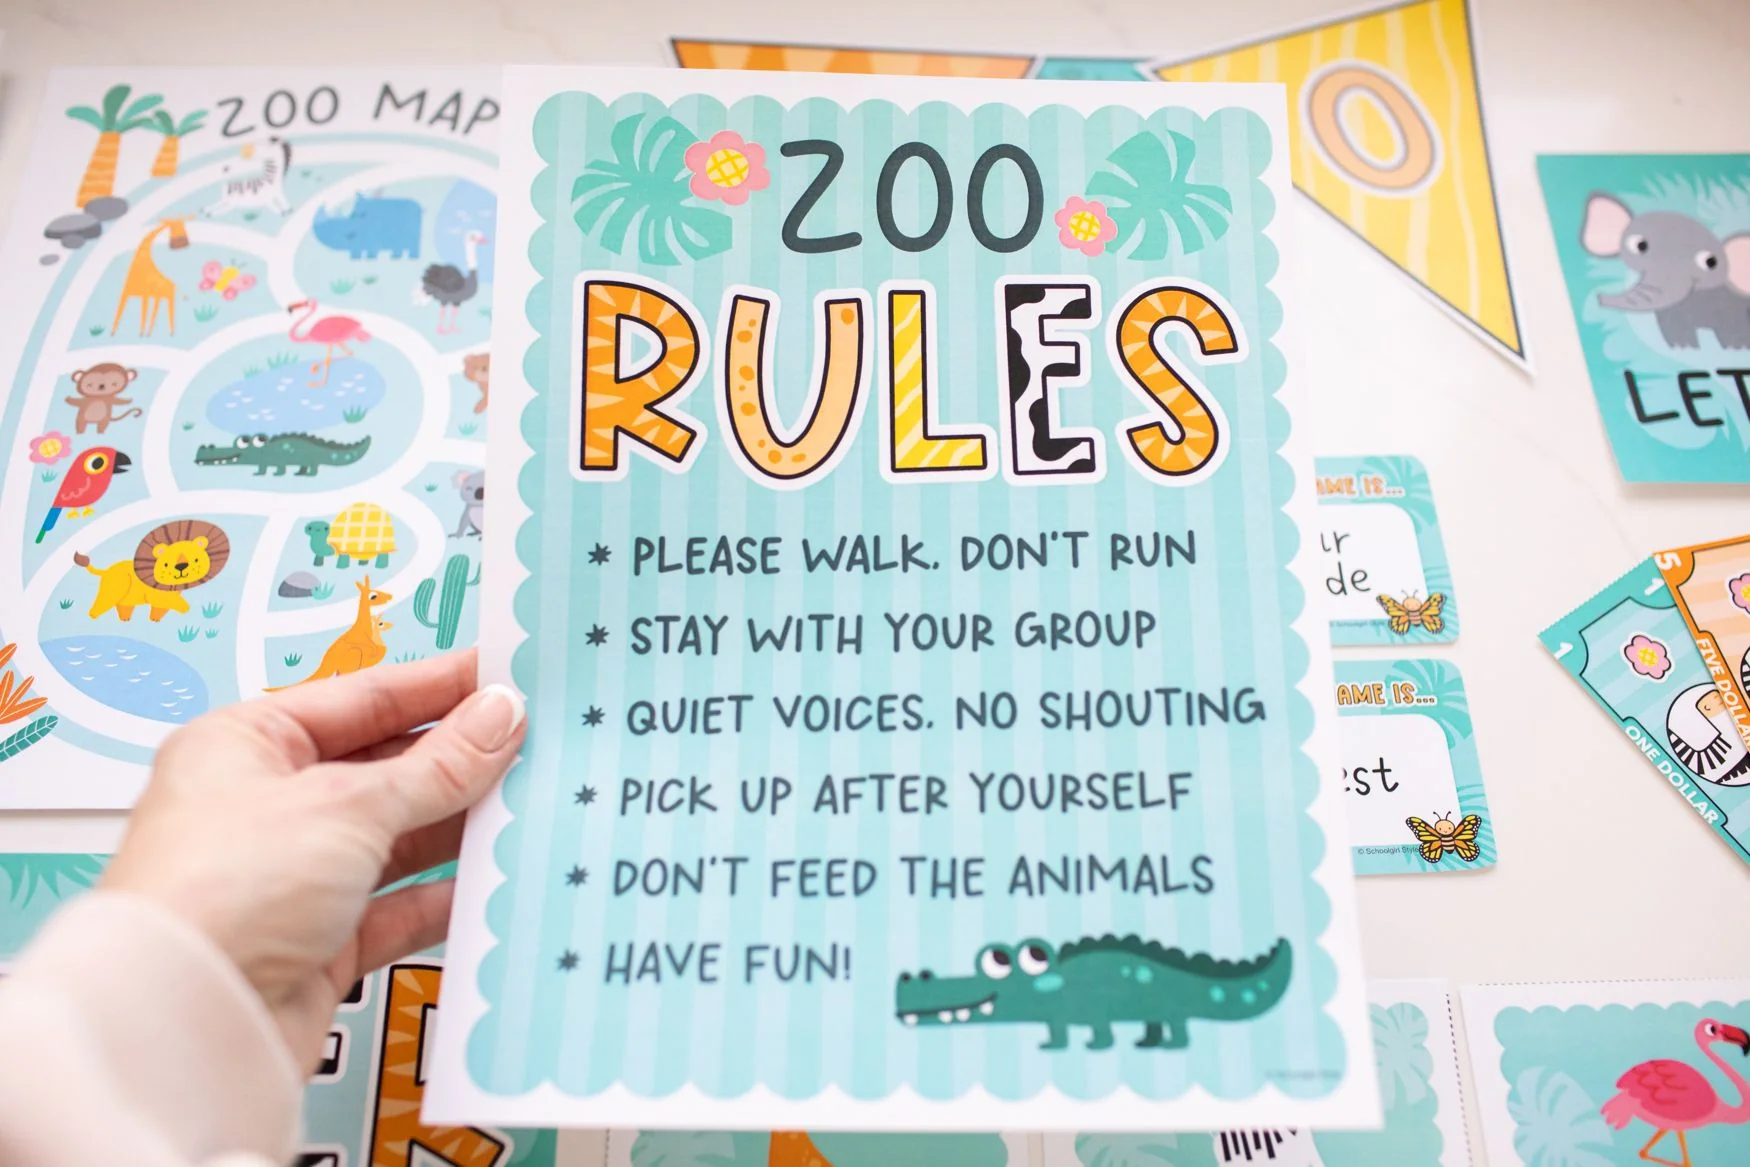 ZOO MAP
ZOO
RULES
* PLEASE WALK. DON'T RUN
* STAY WITH YOUR GROUP
* QUIET VOICES. NO SHOUTING
* PICK UP AFTER YOURSELF
* DON'T FEED THE ANIMALS
* HAVE FUN!
O
LET
AME IS...
ur
de
AME IS...
est
© Schoolgirl Style
1
1
ONE DOLLAR
5
FIVE DOLLAR
R